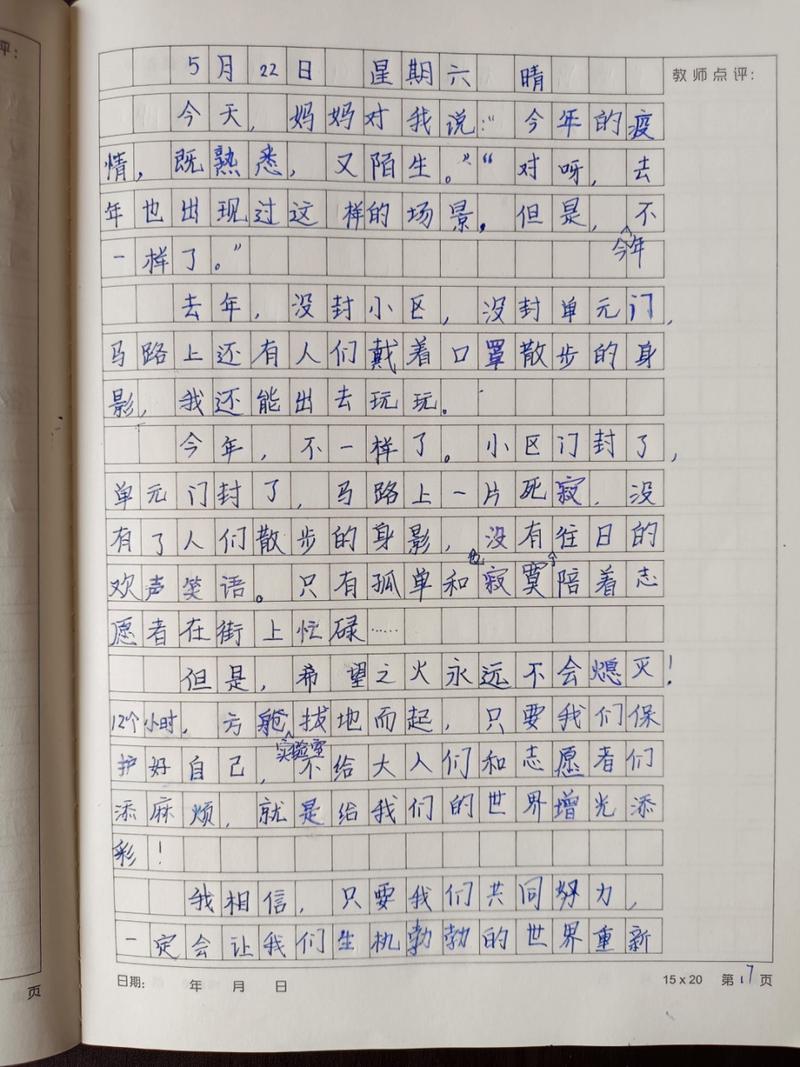 评：
教师点评：
5月22日 星期六 晴
今天，妈妈对我说：“今年的疫
情，既熟悉，又陌生。”“对呀，去
年也出现过这样的场景，但是，今年不
一样了。”
去年，没封小区，没封单元门，
马路上还有人们戴着口罩散步的身
影，我还能出去玩玩。
今年，不一样了。小区门封了，
单元门封了，马路上一片死寂，没
有了人们散步的身影，没有往日的
欢声笑语。只有孤单和寂寞陪着志
愿者在街上忙碌……
但是，希望之火永远不会熄灭！
12个小时，方舱实验室拔地而起，只要我们保
护好自己，不给大人们和志愿者们
添麻烦，就是给我们的世界增光添
彩！
我相信，只要我们共同努力，
一定会让我们生机勃勃的世界重新
日期： 年 月 日 15x20 第17页
页